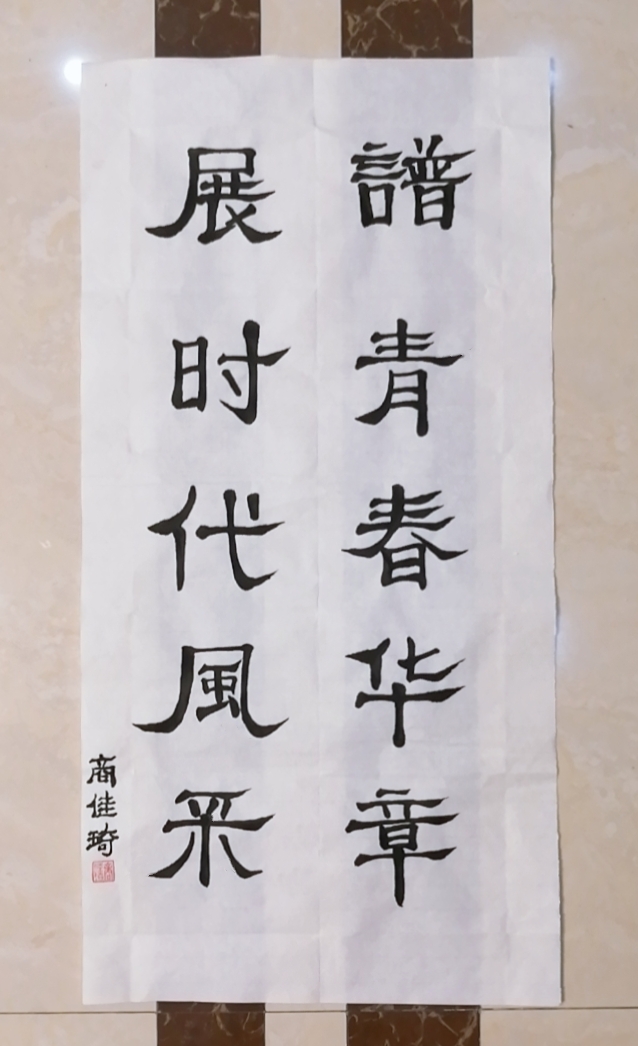 譜青春华章
展时代風采
商佳琦